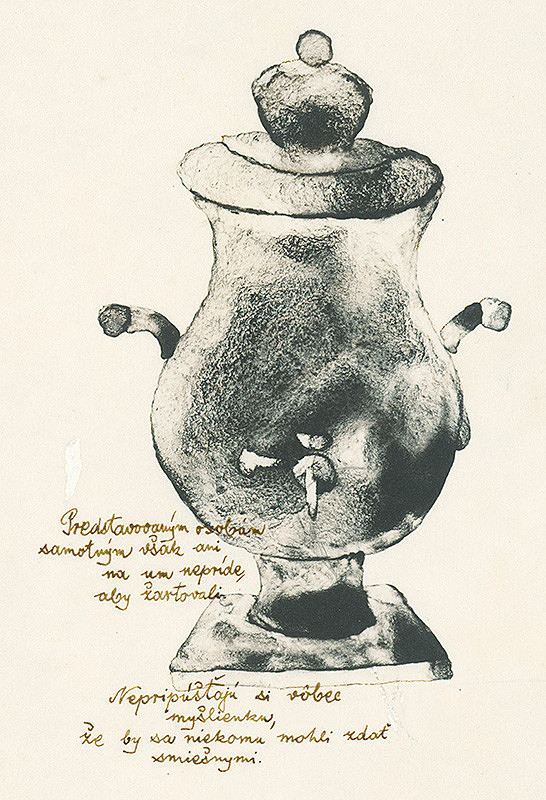 Predstavovaným osobám
samotným však ani
na um nepríde,
aby žartovali.
Nepripúšťajú si vôbec
myšlienku,
že by sa niekomu mohli zdať
smiešnymi.